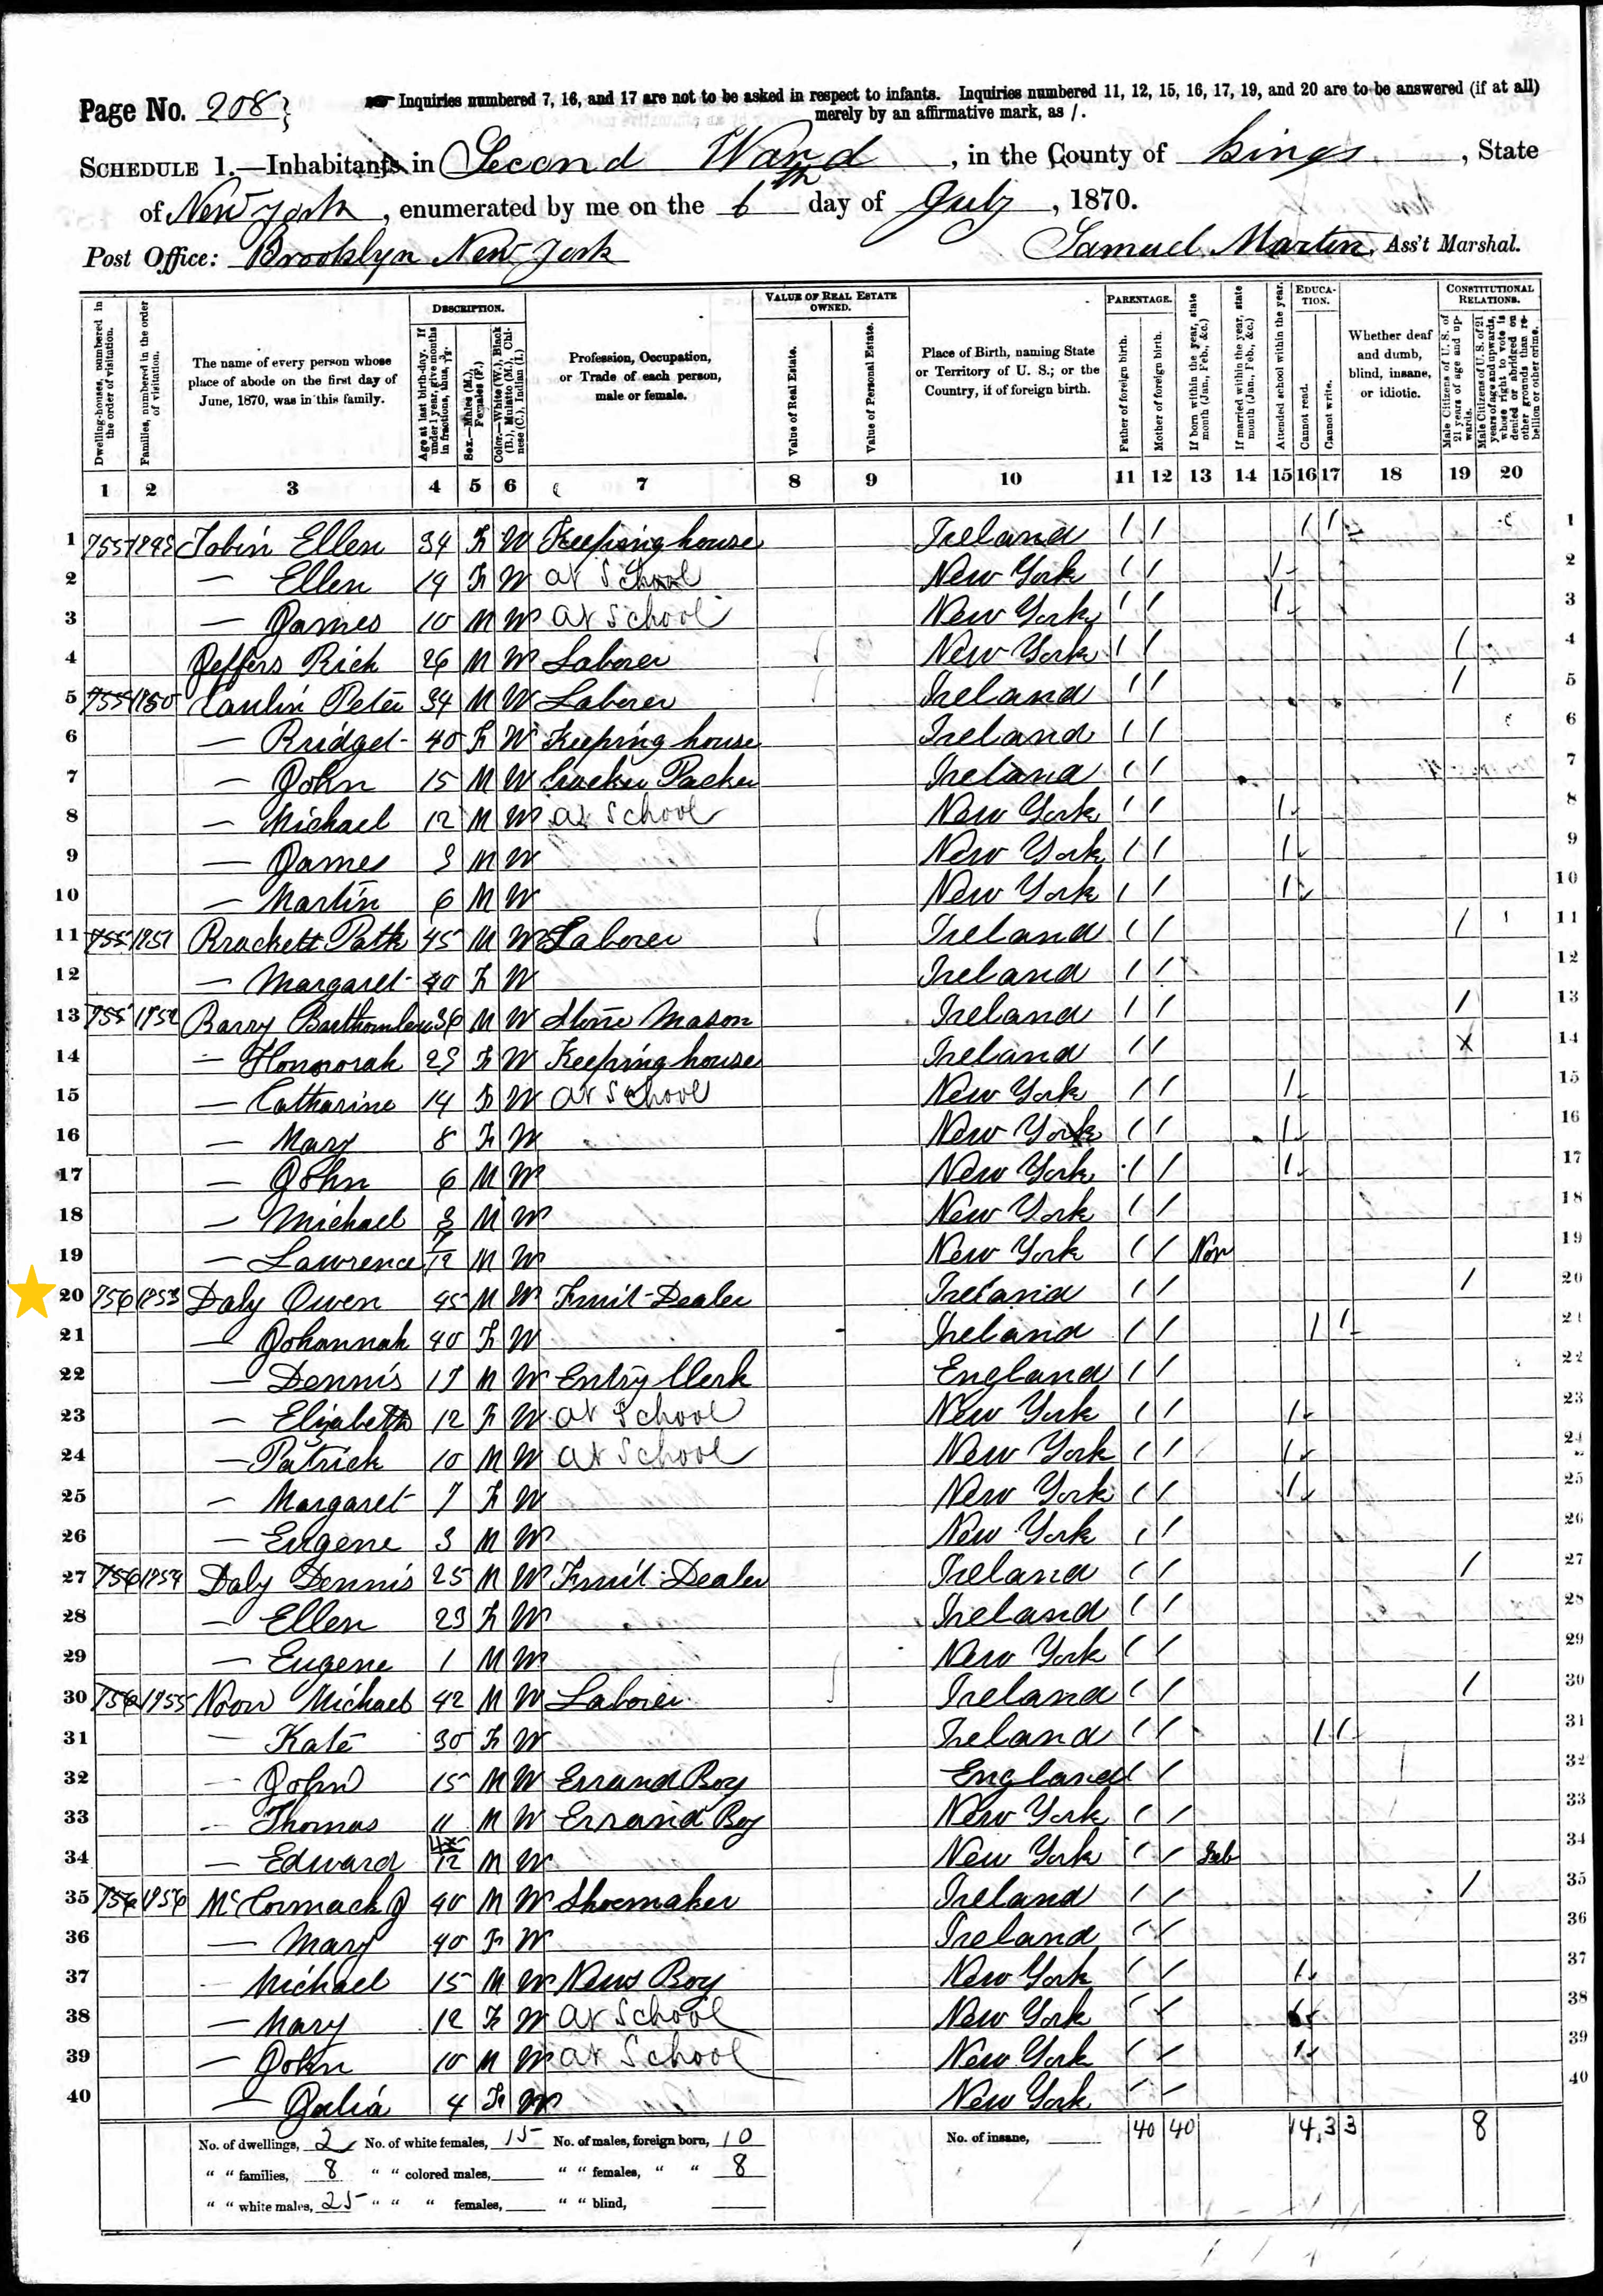 Page No. 208
Inquiries numbered 7, 16, and 17 are not to be asked in respect to infants. Inquiries numbered 11, 12, 15, 16, 17, 19, and 20 are to be answered (if at all)
merely by an affirmative mark, as /.
SCHEDULE 1.—Inhabitants in Second Ward, in the County of Kings, State
of New York, enumerated by me on the 6th day of July, 1870.
Post Office: Brooklyn New York Samuel Martin, Ass't Marshal.
Dwelling-houses, numbered in the order of visitation.
Families, numbered in the order of visitation.
The name of every person whose place of abode on the first day of June, 1870, was in this family.
DESCRIPTION.
Age at last birth-day. If under 1 year, give months in fractions, thus, 3/12.
Sex.—Males (M.), Females (F.)
Color.—White (W.), Black (B.), Mulatto (M.), Chinese (C.), Indian (I.)
Profession, Occupation, or Trade of each person, male or female.
VALUE OF REAL ESTATE OWNED.
Value of Real Estate.
Value of Personal Estate.
Place of Birth, naming State or Territory of U. S.; or the Country, if of foreign birth.
PARENTAGE.
Father of foreign birth.
Mother of foreign birth.
If born within the year, state month (Jan., Feb., &c.)
If married within the year, state month (Jan., Feb., &c.)
Attended school within the year.
EDUCATION.
Cannot read.
Cannot write.
Whether deaf and dumb, blind, insane, or idiotic.
CONSTITUTIONAL RELATIONS.
Male Citizens of U. S. of 21 years of age and upwards.
Male Citizens of U. S. of 21 years of age and upwards, whose right to vote is denied or abridged on other grounds than rebellion or other crime.
1 2 3 4 5 6 7 8 9 10 11 12 13 14 15 16 17 18 19 20
1 Tobin Ellen 34 F W Keeping house Ireland / / / / 1
2 — Ellen 14 F W at School New York / / / 2
3 — James 10 M W at School New York / / / 3
4 Jeffers Rich 26 M W Laborer New York / / / 4
5 Peter 34 M W Laborer Ireland / / / 5
6 — Bridget 40 F W Keeping house Ireland / / 6
7 — John 15 M W Cracker Packer Ireland / / 7
8 — Michael 12 M W at School New York / / / 8
9 — James M W New York / / / 9
10 — Martin 6 M W New York / / / 10
11 1851 Brackett Patk 45 M W Laborer Ireland / / / 11
12 — Margaret 40 F W Ireland / / 12
13 1852 Barry Bartholomew 36 M W Stone Mason Ireland / / / 13
14 — Honnorah F W Keeping house Ireland / / X 14
15 — Catharine 14 F W at School New York / / / 15
16 — Mary 8 F W New York / / / 16
17 — John 6 M W New York / / / 17
18 — Michael 3 M W New York / / 18
19 — Lawrence M W New York / / Nov 19
20 756 1853 Daly Owen 45 M W Fruit Dealer Ireland / / / 20
21 — Johannah 40 F W Ireland / / / / 21
22 — Dennis 17 M W Entry Clerk England / / 22
23 — Elizabeth 12 F W at School New York / / / 23
24 — Patrick 10 M W at School New York / / / 24
25 — Margaret 7 F W New York / / / 25
26 — Eugene 3 M W New York / / 26
27 756 1854 Daly Dennis 25 M W Fruit Dealer Ireland / / / 27
28 — Ellen 23 F W Ireland / / 28
29 — Eugene 1 M W New York / / 29
30 756 1855 Noon Michael 42 M W Laborer Ireland / / / 30
31 — Kate 30 F W Ireland / / / / 31
32 — John 15 M W Errand Boy England / / 32
33 — Thomas 11 M W Errand Boy New York / / 33
34 — Edward M W New York / / Feb 34
35 756 1856 McCormack J 40 M W Shoemaker Ireland / / / 35
36 — Mary 40 F W Ireland / / 36
37 — Michael 15 M W News Boy New York / / / 37
38 — Mary 12 F W at School New York / / / 38
39 — John 10 M W at School New York / / / 39
40 — Julia 4 F W New York / / 40
No. of dwellings, 2 No. of white females, 15 No. of males, foreign born, 10 No. of insane, 40 40 14 3 3 8
" " families, 8 " " colored males, " " females, " " 8
" " white males, 25 " " " females, " " blind,